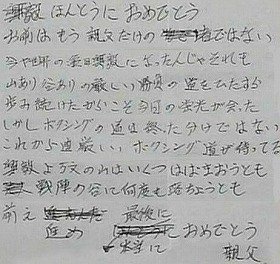 ほんとうにおめでとう
お前はもう親父だけの者ではない
今や世界の になったんじゃそれも
山あり谷ありの厳しい勝負の道をひたすら
歩み続けたからこそ今日の栄光が有った
しかしボクシングの道は終った分けではない
これから尚厳しいボクシング道が待ってる
よ万丈の山はいくつはばまおうとも
戦陣の谷に何度も落ちょうとも
前え 最後に
進め におめでとう
本当に
親父